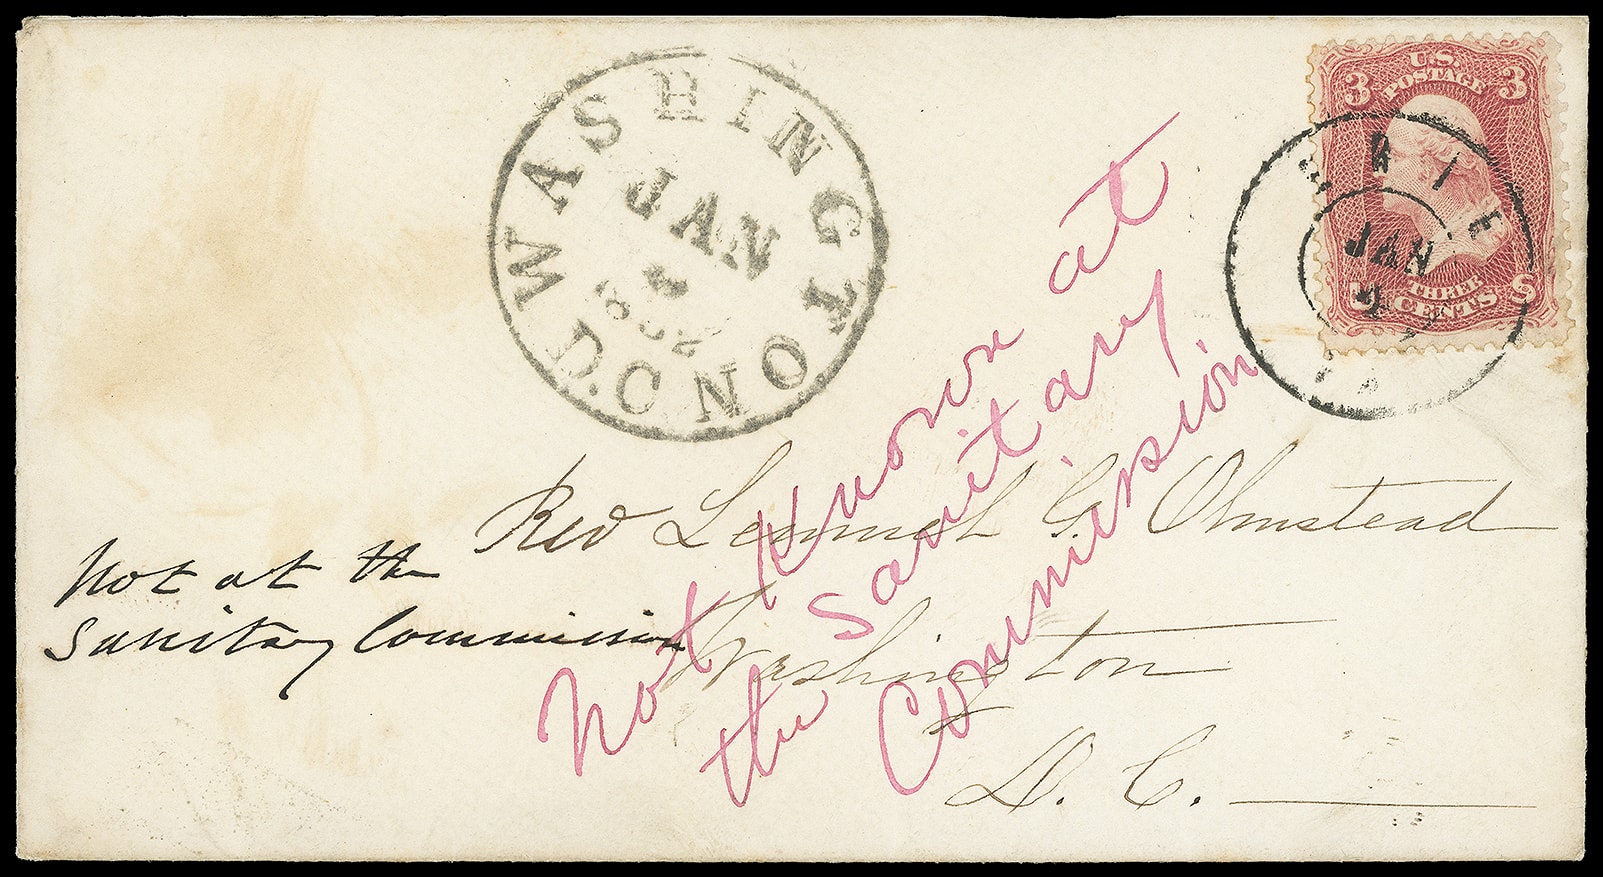 WASHINGTON D.C.
JAN
4
1862
3 U.S. POSTAGE 3
THREE CENTS
ERIE
JAN
2
PA
Rev Lemuel G. Olmstead
Washington
D. C.
Not at the
Sanitary Commission
Not Known at
the Sanitary
Commission